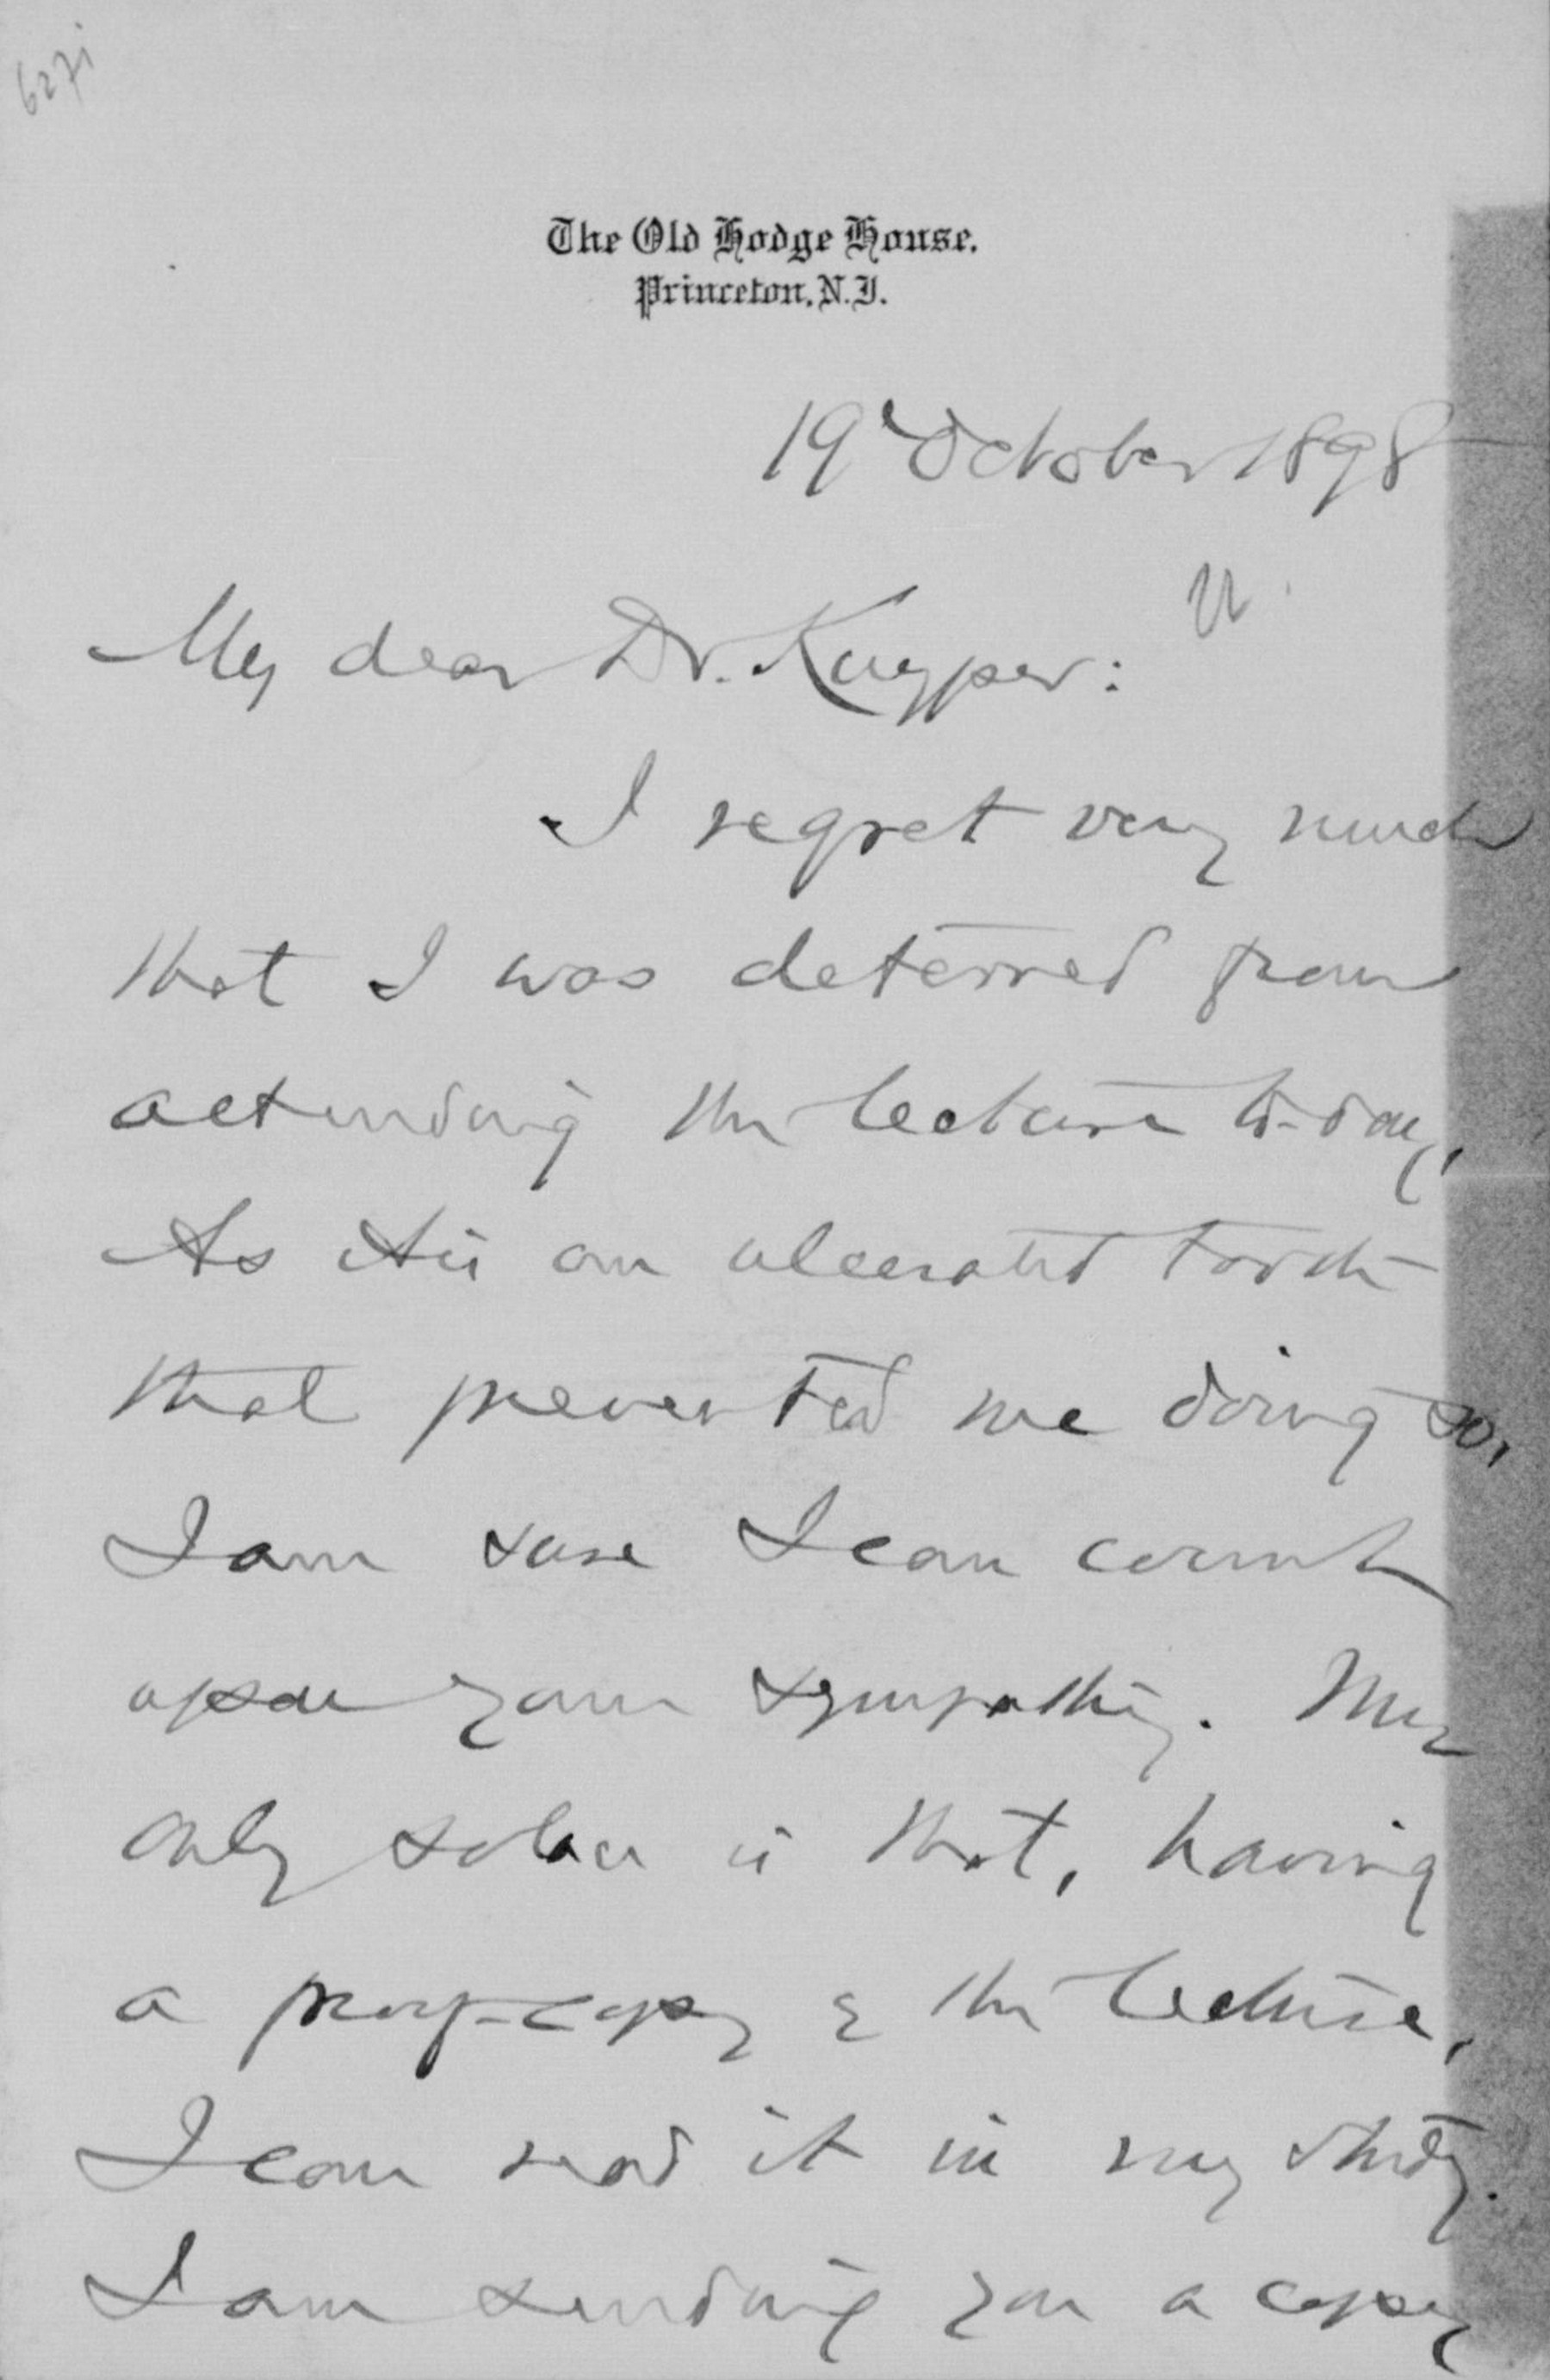 6271
The Old Hodge House.
Princeton, N.J.
19 October 1898
My dear Dr. Kuyper:
I regret very much
that I was deterred from
attending the lecture to-day.
As it is an ulcerated tooth
that prevented me doing so,
I am sure I can count
upon your sympathy. My
only solace is that, having
a proof-copy of the lecture,
I can read it in my study.
I am sending you a copy